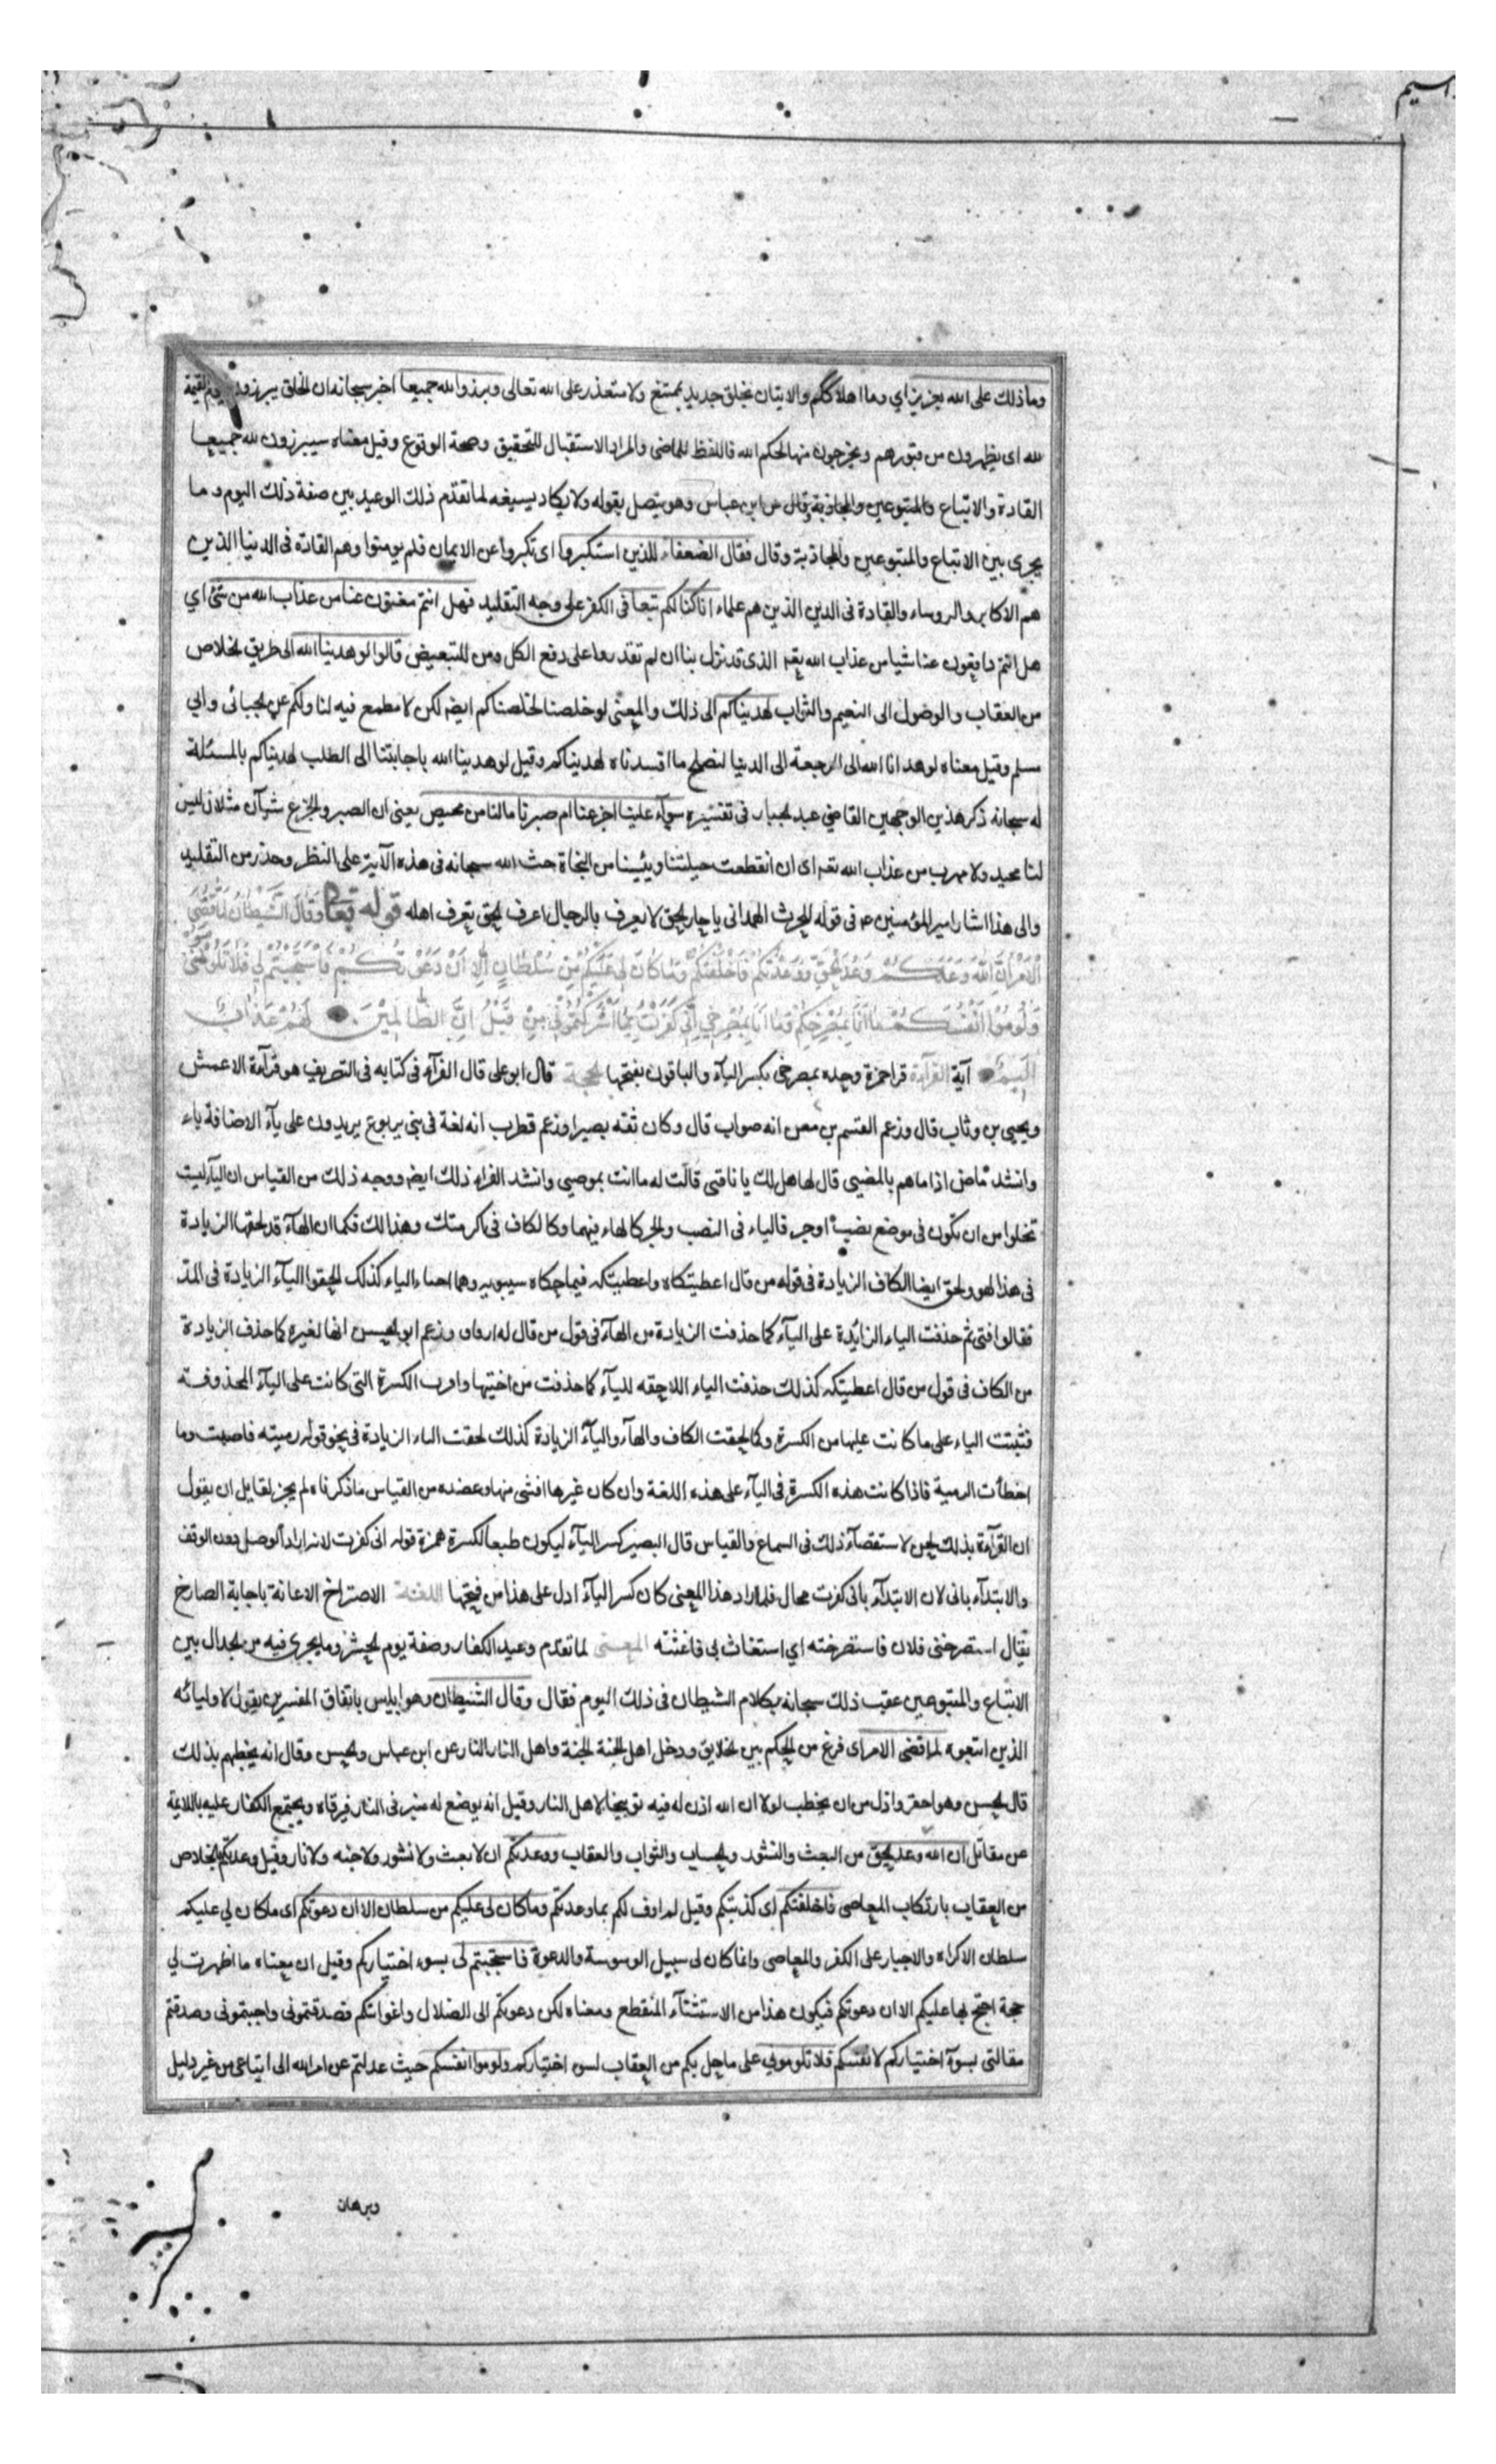 وما ذلك على الله بعزيز اي وما اهلاككم والاتيان بخلق جديد بممتنع ولا متعذر على الله تعالى وبرزوا لله جميعا اخبر سبحانه ان الخلق يبرزون يوم القيمة
لله اى يظهرون من قبورهم ويخرجون منها لحكم الله فاللفظ للماضى والمراد الاستقبال للتحقيق وصحة الوقوع وقيل معناه سيبرزون لله جميعا
القادة والاتباع والمتبوعين والمجاذبة قال ابن عباس وهو يتصل بقوله ولا يكاد يسيغه لما تقدم ذلك الوعيد بين صفة ذلك اليوم وما
يجرى بين الاتباع والمتبوعين والمجاذبة وقال فقال الضعفاء للذين استكبروا اى تكبروا عن الايمان فلم يومنوا وهم القادة فى الدنيا الذين
هم الاكابر والروساء والقادة فى الدين الذين هم علماء انا كنا لكم تبعا فى الكفر على وجه التقليد فهل انتم مغنون عنا من عذاب الله من شئ اي
هل انتم دافعون عنا شيا من عذاب الله الذى قد نزل بنا ان لم تقدروا على دفع الكل ومن للتبعيض قالوا لو هدينا الله الى طريق الخلاص
من العقاب والوصول الى النعيم والثواب لهديناكم الى ذلك والمعنى لو خلصنا لخلصناكم ايضا لكن لا مطمع فيه لنا ولكم عن الجبائى وابي
مسلم وقيل معناه لو هدانا الله الى الرجعة الى الدنيا لنصلح ما افسدناه لهديناكم وقيل لو هدينا الله باجابتنا الى الطلب لهديناكم بالمسئلة
له سبحانه ذكر هذين الوجهين القاضي عبد الجبار فى تفسيره سوآء علينا اجزعنا ام صبرنا مالنا من محيص يعنى ان الصبر والجزع شيآن مثلان ليس
لنا محيد ولا مهرب من عذاب الله اى ان انقطعت حيلتنا ويئسنا من النجاة حث الله سبحانه فى هذه الآية على النظر وحذر من التقليد
والى هذا اشار امير المؤمنين ع فى قوله للحرث الهمدانى يا حار الحق لا يعرف بالرجال اعرف الحق تعرف اهله قوله تعالى وَقَالَ الشَّيْطانُ لَمَّا قُضِيَ
الْاَمْرُ اِنَّ اللهَ وَعَدَكُمْ وَعْدَ الْحَقِّ وَوَعَدْتُكُمْ فَاَخْلَفْتُكُمْ وَمَا كَانَ لِيَ عَلَيْكُمْ مِنْ سُلْطانٍ اِلَّا اَنْ دَعَوْتُكُمْ فَاسْتَجَبْتُمْ لِي فَلَا تَلُومُونِي
وَلُومُوا اَنْفُسَكُمْ مَا اَنَا بِمُصْرِخِكُمْ وَمَا اَنْتُمْ بِمُصْرِخِيَّ اِنِّي كَفَرْتُ بِمَا اَشْرَكْتُمُونِ مِنْ قَبْلُ اِنَّ الظَّالِمِينَ لَهُمْ عَذَابٌ
اَلِيمٌ آية القرآءة قرا حمزة وحده بمصرخى بكسر اليآء والباقون بفتحها الحجة قال ابو على قال الفرآء فى كتابه فى التصريف هو قرآءة الاعمش
ويحيى بن وثاب قال وزعم القسم بن معن انه صواب قال وكان ثقه بصيرا وزعم قطرب انه لغة فى بنى يربوع يزيدون على يآء الاضافة ياء
وانشد ماض اذا ما هم بالمضيى قال لها هل لك يا تا فى قالت له ما انت بموصي وانشد الفراء ذلك ايضا ووجه ذلك من القياس ان اليآء ليست
تخلوا من ان تكون فى موضع نصب او جر فالياء فى النصب والجر كالهاء فيهما وكالكاف فى اكرمتك وهذا لك فكما ان الهآء قد لحقتها الزيادة
فى هذا لهو ولحق ايضا الكاف الزيادة فى قوله من قال اعطيتكاه واعطيتكه فيما حكاه سيبويه وهما اختا الياء كذلك الحقوا اليآء الزيادة فى المد
فقالوا فى ثم حذفت الياء الزائدة على اليآء كما حذفت الزيادة من الهآء فى قول من قال له ارقان وزعم ابو الحسن انها لغيره كما حذف الزيادة
من الكاف فى قول من قال اعطيتكه كذلك حذفت الياء اللاحقه لليآء كما حذفت من اختيها واقرت الكسرة التى كانت على اليآء المحذوفة
فثبتت الياء على ما كانت عليها من الكسرة وكما لحقت الكاف والهآء واليآء الزيادة كذلك لحقت التاء الزيادة فى نحو قوله رميتيه فاصميت وما
اخطأت الرمية فاذا كانت هذه الكسرة فى اليآء على هذه اللغة وان كان غيرها افشى منها وعضده من القياس ما ذكرناه لم يجز لقايل ان يقول
ان القرآءة بذلك لحن لاستفضآءة ذلك فى السماع والقياس قال البصير كسر اليآء ليكون طبعا لكسرة همزة قوله انى كفرت لانه اراد الوصل دون الوقف
والابتدآء بانى لان الابتدآء بانى كفرت محال فلما اراد هذا المعنى كان كسر اليآء ادل على هذا من فتحها اللغة الاصتراخ الاغاثة باجابة الصارخ
يقال استصرخنى فلان فاستصرخته اي استغاث بى فاغثته المعنى لما تقدم وعيد الكفار وصفة يوم الحشر وما يجرى فيه من الجدال بين
الاتباع والمتبوعين عقب ذلك سبحانه بكلام الشيطان فى ذلك اليوم فقال وقال الشيطان وهو ابليس باتفاق المفسرين يقول لاوليائه
الذين اتبعوه لما قضى الامر اى فرغ من الحكم بين الخلايق ودخل اهل الجنة الجنة واهل النار النار عن ابن عباس والحسن وقال انه يخطبهم بذلك
قال الحسن وهو احقر واذل من ان يخطب لولا ان الله اذن له فيه توبيخا لاهل النار وقيل انه يوضع له منبر فى النار فيرقاه ويجتمع الكفار عليه باللائمة
عن مقاتل ان الله وعد الحق من البعث والنشور والحساب والثواب والعقاب ووعدتكم ان لا بعث ولا نشور ولا جنه ولا نار وقيل وعدتكم بالخلاص
من العقاب بارتكاب المعاصى فاخلفتكم اى كذبتكم وقيل لم اوف لكم بما وعدتكم وما كان لى عليكم من سلطان الا ان دعوتكم اى ما كان لي عليكم
سلطان الاكراه والاجبار على الكفر والمعاصى وانما كان لى سبيل الوسوسة والدعوة فاستجبتم لى بسوء اختياركم وقيل ان معناه ما اظهرت لي
حجة احتج بها عليكم الا ان دعوتكم فيكون هذا من الاستثنآء المنقطع ومعناه لكن دعوتكم الى الضلال واغواتكم فصدقتمونى واجبتمونى وصدقتم
مقالتى بسوء اختياركم لانفسكم فلا تلومونى على ما حل بكم من العقاب لسوء اختياركم ولوموا انفسكم حيث عدلتم عن امر الله الى اتباعى من غير دليل
وبرهان